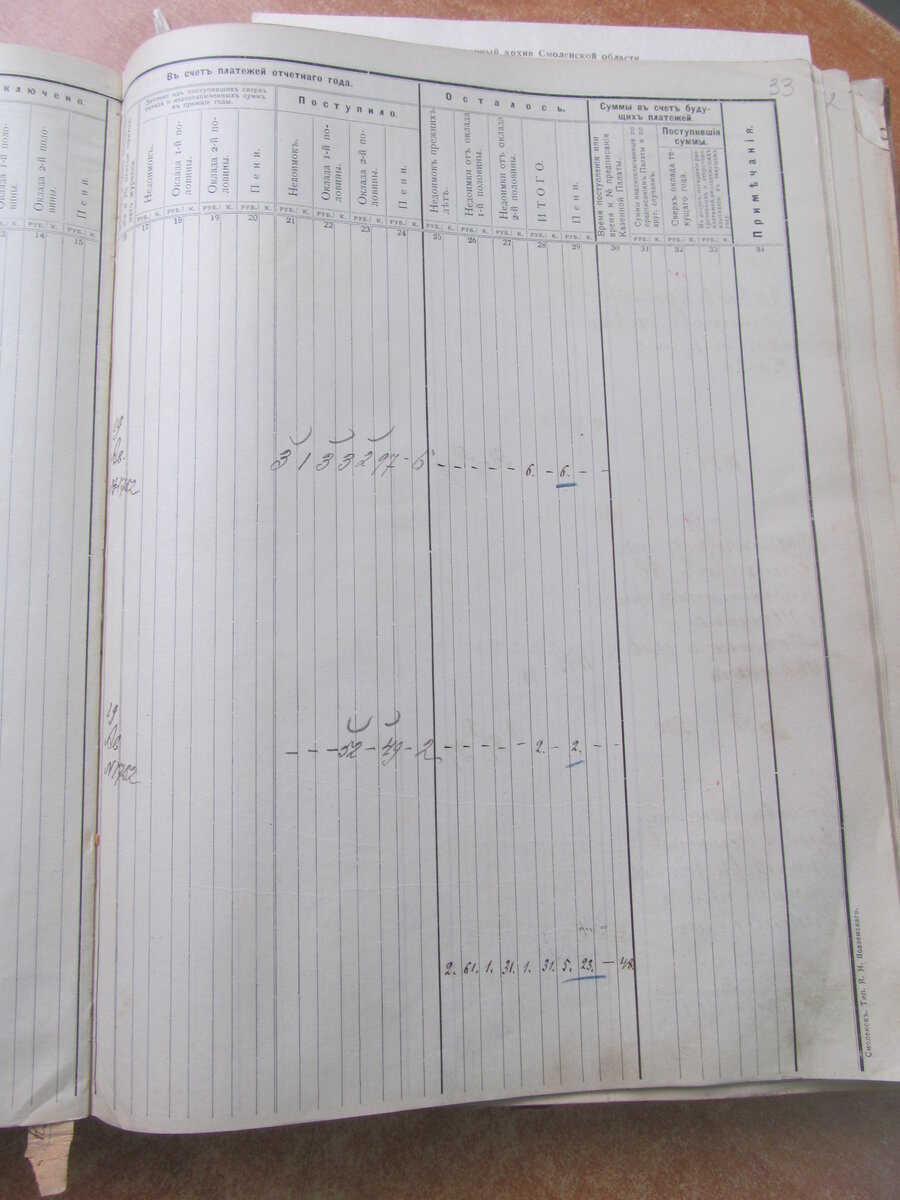 нный архив Смоленской области
33
ключено.
Въ счетъ платежей отчетнаго года.
Зачтено изъ поступившихъ сверхъ оклада и недоисключенныхъ суммъ въ прежніе годы.
Поступило.
Осталось.
Суммы въ счетъ будущихъ платежей.
Поступившія суммы.
Примѣчанія.
Оклада 1-й половины.
Оклада 2-й половины.
Пени.
Недоимокъ.
Оклада 1-й половины.
Оклада 2-й половины.
Пени.
Недоимокъ.
Оклада 1-й половины.
Оклада 2-й половины.
Пени.
Недоимокъ прежнихъ лѣтъ.
Недоимки отъ оклада 1-й половины.
Недоимки отъ оклада 2-й половины.
ИТОГО.
Пени.
Время поступленія или время и № предписанія Казенной Палаты.
Суммы недоисключенныя по предписаніямъ Палаты и по друг. случаямъ.
Сверхъ оклада текущаго года.
РУБ. К. РУБ. К. РУБ. К. РУБ. К. РУБ. К. РУБ. К. РУБ. К. РУБ. К. РУБ. К. РУБ. К. РУБ. К. РУБ. К. РУБ. К. РУБ. К. РУБ. К. РУБ. К.
14 15 16 17 18 19 20 21 22 23 24 25 26 27 28 29 30 31 32 33 34
19
Ав.
№1752
3 1 3 3 2 97 - 6 - - - - - 6. - 6. - -
19
Ав
№1752
- - - 52 - 49 - 2 - - - - - 2. - 2. - -
2. 61. 1. 31. 1. 31. 5. 23. - 48.
Смоленскъ. Тип. Я. Н. Подземскаго.